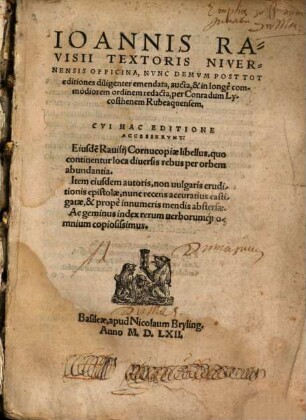 IOANNIS RA-
VISII TEXTORIS NIVER-
NENSIS OFFICINA, NVNC DEMVM POST TOT
editiones diligenter emendata, aucta, & in longè com-
modiorem ordinem redacta, per Conradum Ly-
costhenem Rubeaquensem.
CVI HAC EDITIONE
ACCESSERVNT:
Eiusdē Rauisij Cornucopiæ libellus, quo
continentur loca diuersis rebus per orbem
abundantia.
Item eiusdem autoris, non uulgaris erudi-
tionis epistolæ, nunc recens accuratius casti-
gatæ, & propè innumeris mendis abstersæ.
Ac geminus index rerum uerborumq́; o-
mnium copiosissimus.
Basileæ, apud Nicolaum Bryling.
Anno M. D. LXII.